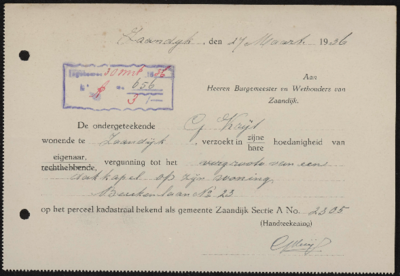 Zaandyk, den 27 Maart 1936
Ingekomen 30 mrt 1936
N° 656
Aan
Heeren Burgemeester en Wethouders van
Zaandijk.
De ondergeteekende G. Krijt
wonende te Zaandijk, verzoekt in zijne hoedanigheid van
hare
eigenaar,
rechthebbende, vergunning tot het vergrooten van eene
dakkapel op zijn woning
Merckenlaan No 23
op het perceel kadastraal bekend als gemeente Zaandijk Sectie A No. 2305
(Handteekening)
GKrijt